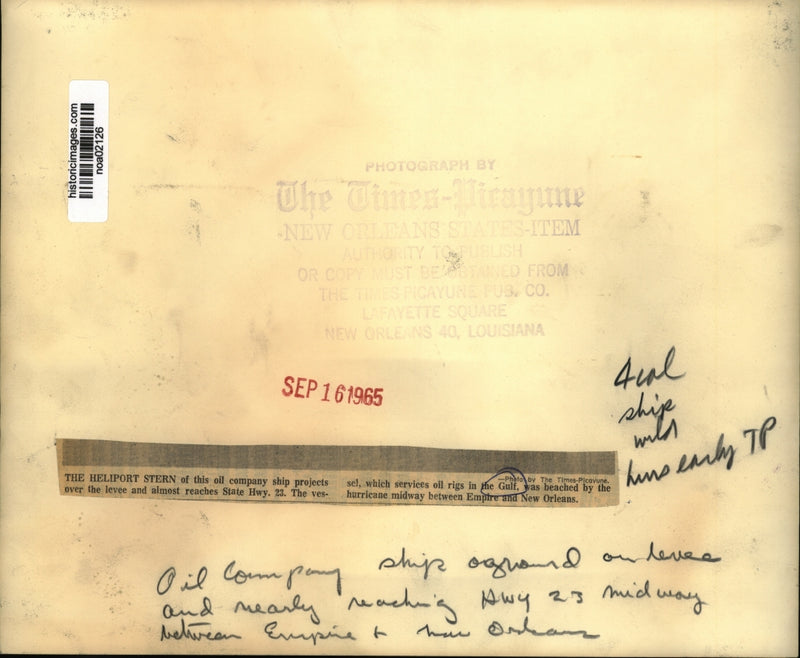 historicimages.com
noa02126
PHOTOGRAPH BY
The Times-Picayune
NEW ORLEANS STATES-ITEM
AUTHORITY TO PUBLISH
OR COPY MUST BE OBTAINED FROM
THE TIMES-PICAYUNE PUB. CO.
LAFAYETTE SQUARE
NEW ORLEANS 40, LOUISIANA
SEP 16 1965
4 col
ship
wild
early TP
—Photo by The Times-Picayune.
THE HELIPORT STERN of this oil company ship projects
over the levee and almost reaches State Hwy. 23. The ves-
sel, which services oil rigs in the Gulf, was beached by the
hurricane midway between Empire and New Orleans.
Oil Company ship aground on levee
and nearly reaching Hwy 23 midway
between Empire + New Orleans